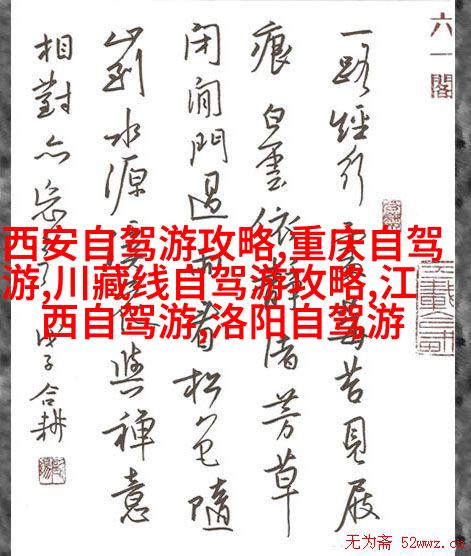 六一閣
一路經行處莓苔見屐
痕白雲依靜渚芳草
閉閒門過雨看松色隨
山到水源溪花與禪意
相對亦忘言
戊子合耕
西安自驾游攻略,重庆自驾
游,川藏线自驾游攻略,江
西自驾游,洛阳自驾游
无为斋 52wwz.cn